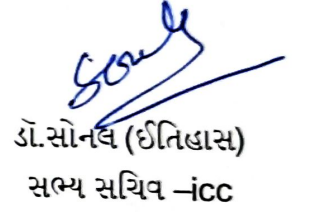 ડૉ.સોનલ (ઈતિહાસ)
સભ્ય સચિવ –icc